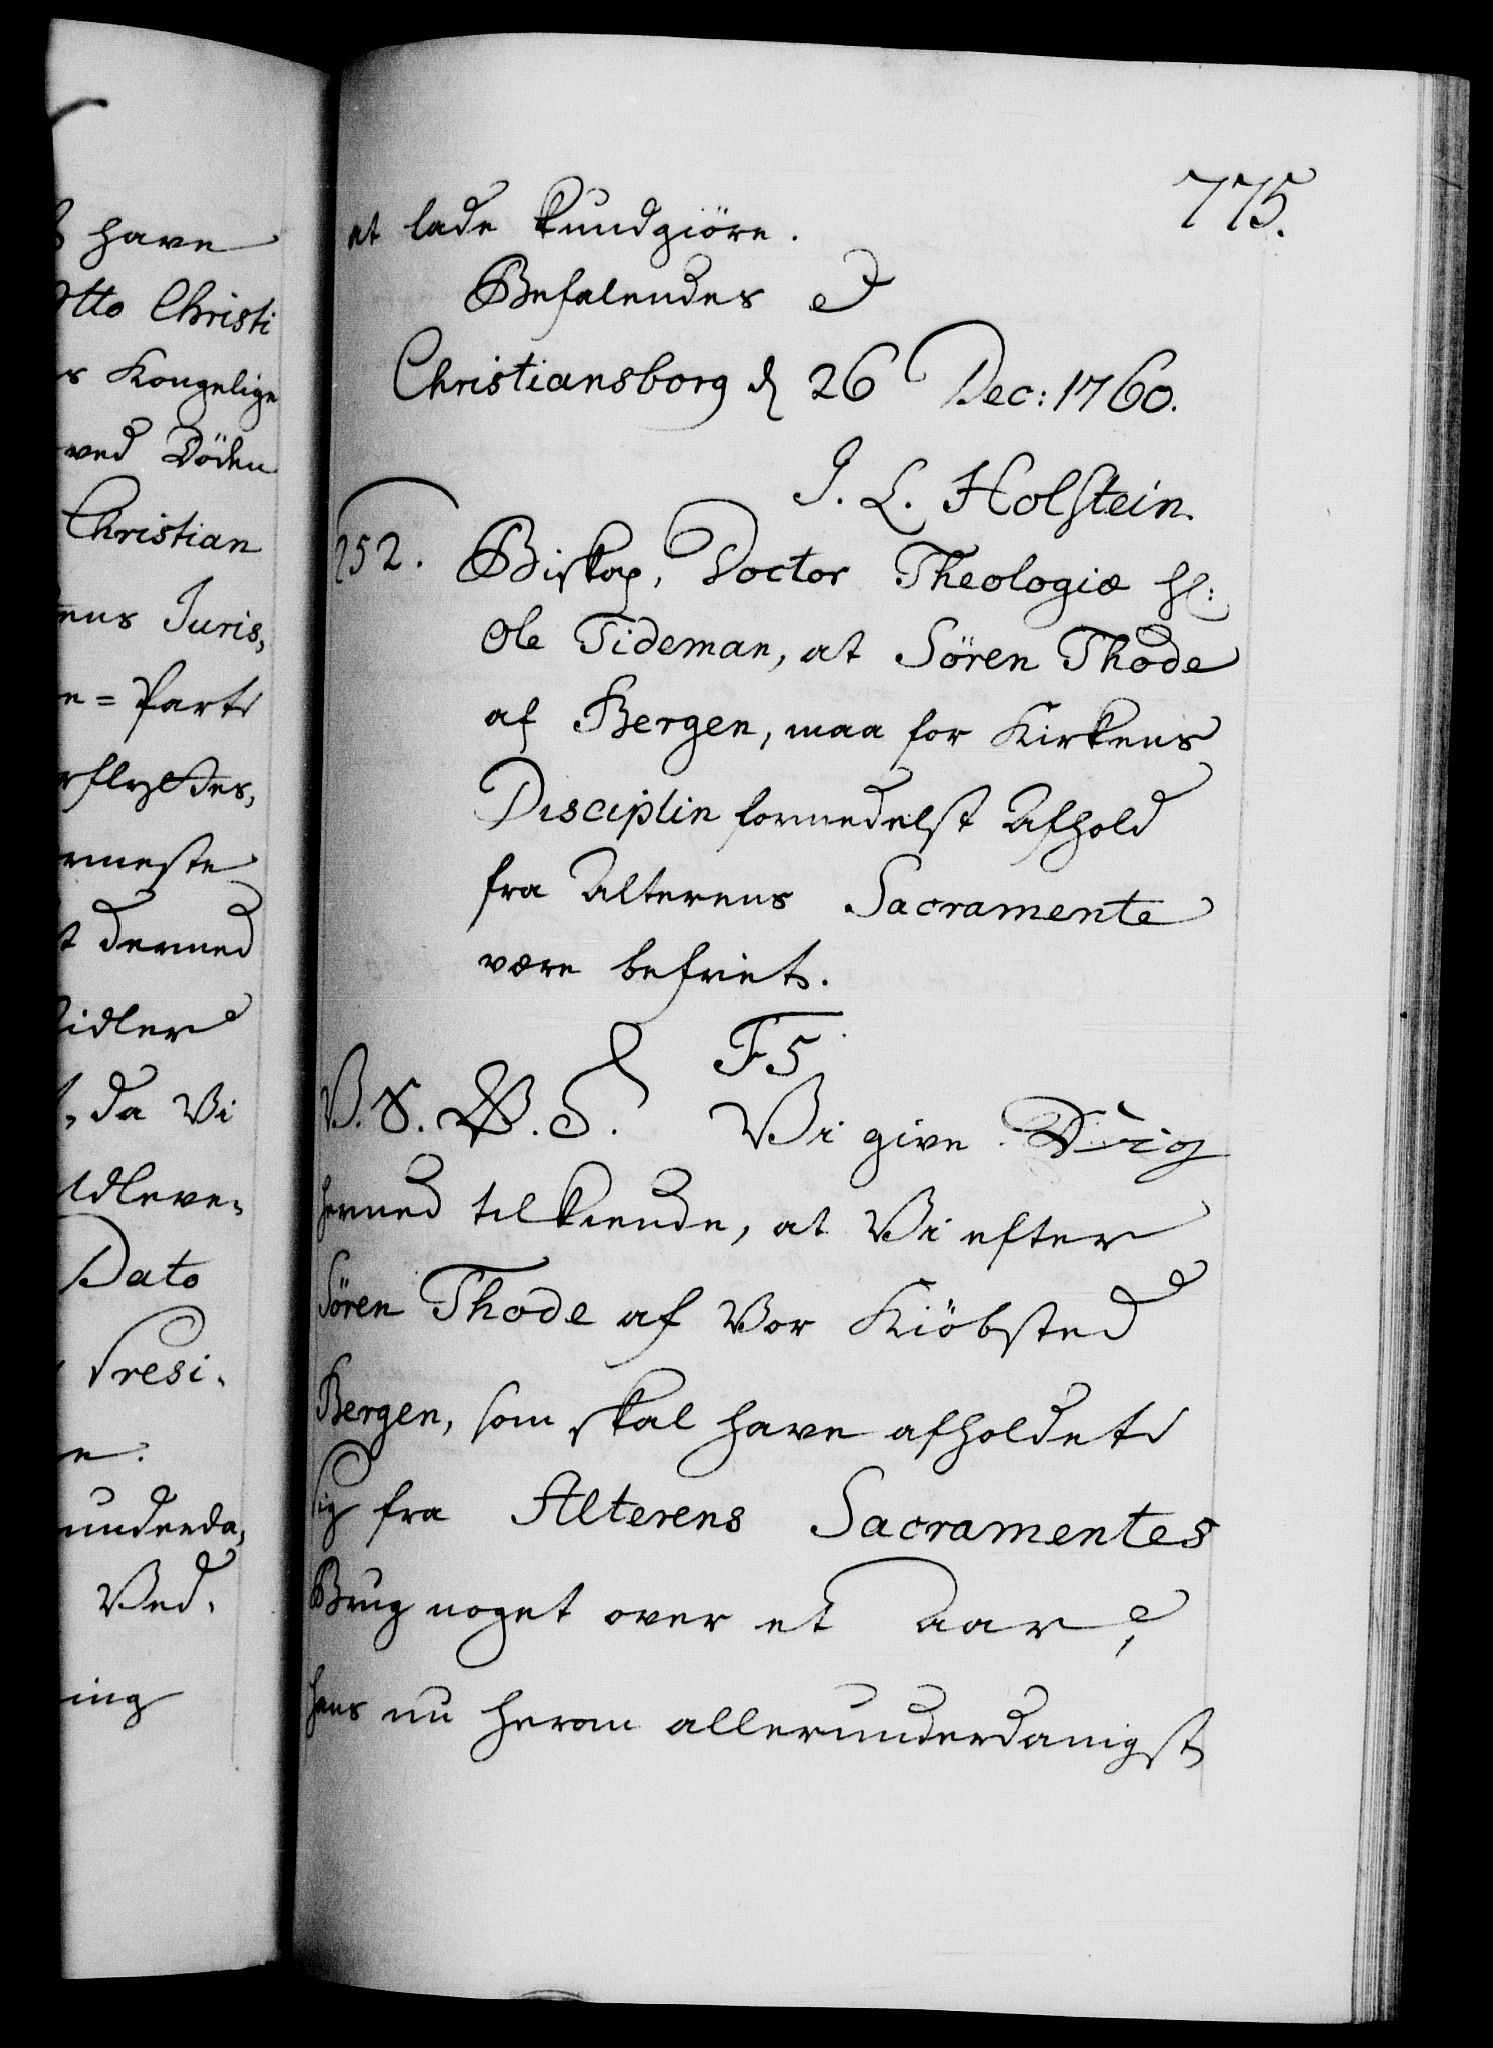 775.
et lade kundgiöre.
Befalendes
Christiansborg d 26 Dec: 1760.
J. L. Holstein.
252. Biskop, Doctor Theologiæ Hl:
Ole Tideman, at Sören Thode
af Bergen, maa for Kirkens
Disciplin formedelst Afhold
fra Alterens Sacramente
være befriet.
F5.
V. S. V. G. Vi give Dig
hermed tilkiende, at Vi efter
Sören Thode af Vor Kiöbsted
Bergen, som skal have afholdet
sig fra Alterens Sacramentes
Brug noget over et Aar,
hans nu herom allerunderdanigst
have
Otto Christi
Kongelige
ved Döden
Christian
Juris,
Parti
dermed
, da Vi
Dato
Presi.
underda,
Ved.
ing